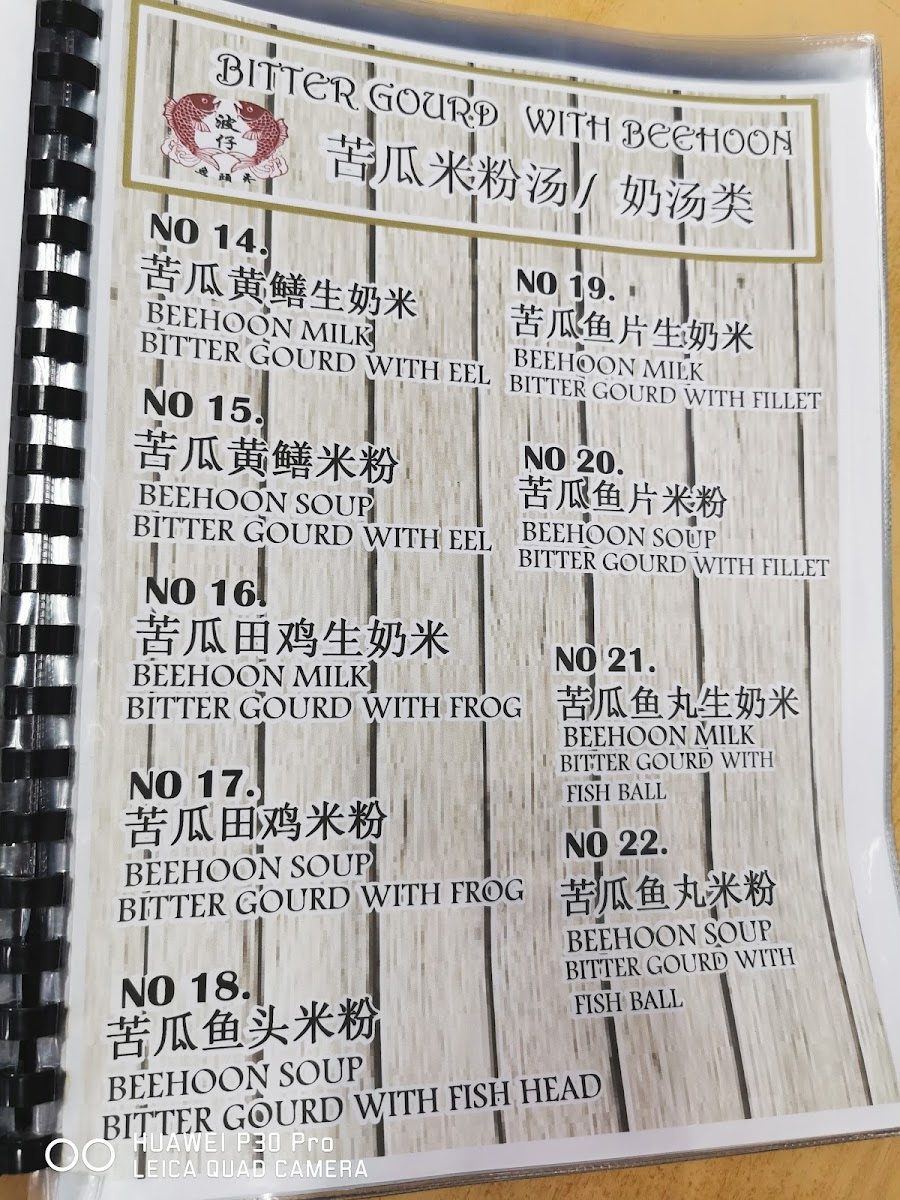 BITTER GOURD WITH BEEHOON
波仔
苦瓜米粉汤/ 奶汤类
NO 14.
苦瓜黄鳝生奶米
BEEHOON MILK
BITTER GOURD WITH EEL
NO 15.
苦瓜黄鳝米粉
BEEHOON SOUP
BITTER GOURD WITH EEL
NO 16.
苦瓜田鸡生奶米
BEEHOON MILK
BITTER GOURD WITH FROG
NO 17.
苦瓜田鸡米粉
BEEHOON SOUP
BITTER GOURD WITH FROG
NO 18.
苦瓜鱼头米粉
BEEHOON SOUP
BITTER GOURD WITH FISH HEAD
NO 19.
苦瓜鱼片生奶米
BEEHOON MILK
BITTER GOURD WITH FILLET
NO 20.
苦瓜鱼片米粉
BEEHOON SOUP
BITTER GOURD WITH FILLET
NO 21.
苦瓜鱼丸生奶米
BEEHOON MILK
BITTER GOURD WITH
FISH BALL
NO 22.
苦瓜鱼丸米粉
BEEHOON SOUP
BITTER GOURD WITH
FISH BALL
HUAWEI P30 Pro
LEICA QUAD CAMERA